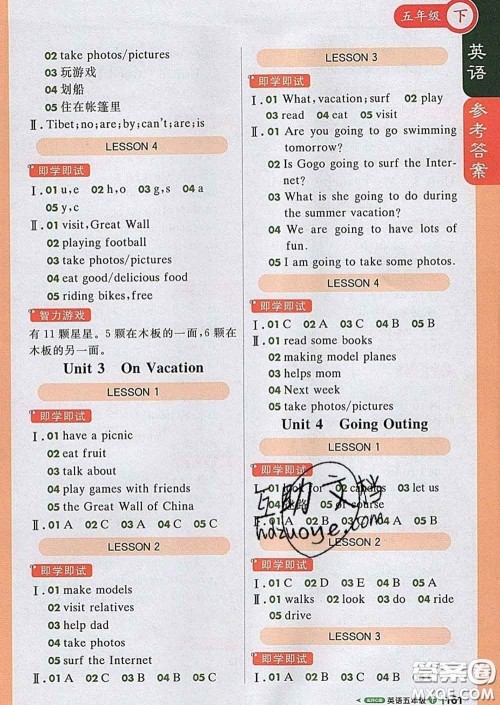 五年级 下
英语
参考答案
02 take photos/pictures
03 玩游戏
04 划船
05 住在帐篷里
Ⅱ. Tibet;no;are;by;can't;are;is
LESSON 4
即学即试
Ⅰ. 01 u,e 02 h,o 03 g,s 04 a
05 y,c
Ⅱ. 01 visit,Great Wall
02 playing football
03 take photos/pictures
04 eat good/delicious food
05 riding bikes,free
智力游戏
有 11 颗星星。5 颗在木板的一面,6 颗在
木板的另一面。
Unit 3 On Vacation
LESSON 1
即学即试
Ⅰ. 01 have a picnic
02 eat fruit
03 talk to each other
04 play games with friends
05 the Great Wall of China
Ⅱ. 01 A 02 C 03 A 04 C 05 C
LESSON 2
即学即试
Ⅰ. 01 make models
02 visit relatives
03 help dad
04 take photos
05 surf the Internet
Ⅱ. 01 A 02 B 03 B 04 A 05 C
LESSON 3
即学即试
Ⅰ. 01 What,vacation;surf 02 play
03 read 04 eat 05 visit
Ⅱ. 01 Are you going to go swimming
tomorrow?
02 Is Gogo going to surf the Inter-
net?
03 What is she going to do during
the summer vacation?
04 We are going to have lots of
fun.
05 I am going to take some photos.
LESSON 4
即学即试
Ⅰ. 01 C 02 A 03 C 04 B 05 B
Ⅱ. 01 read some books
02 making model planes
03 helps mom
04 Next week
05 taking photos/pictures
Unit 4 Going Outing
LESSON 1
即学即试
Ⅰ. 01 look for 02 candies 03 let us
04 05 of course
Ⅱ. 01 A 02 C 03 A 04 B 05 C
LESSON 2
即学即试
Ⅰ. 01 C 02 D 03 E 04 B 05 A
Ⅱ. 01 walks 02 look 03 do 04 ride
05 drive
LESSON 3
即学即试
Ⅰ. 01 A 02 B 03 A 04 B 05 C
互助文档
hdzuoye.com
英语五年级 下
101
答案圈
MXQE.COM